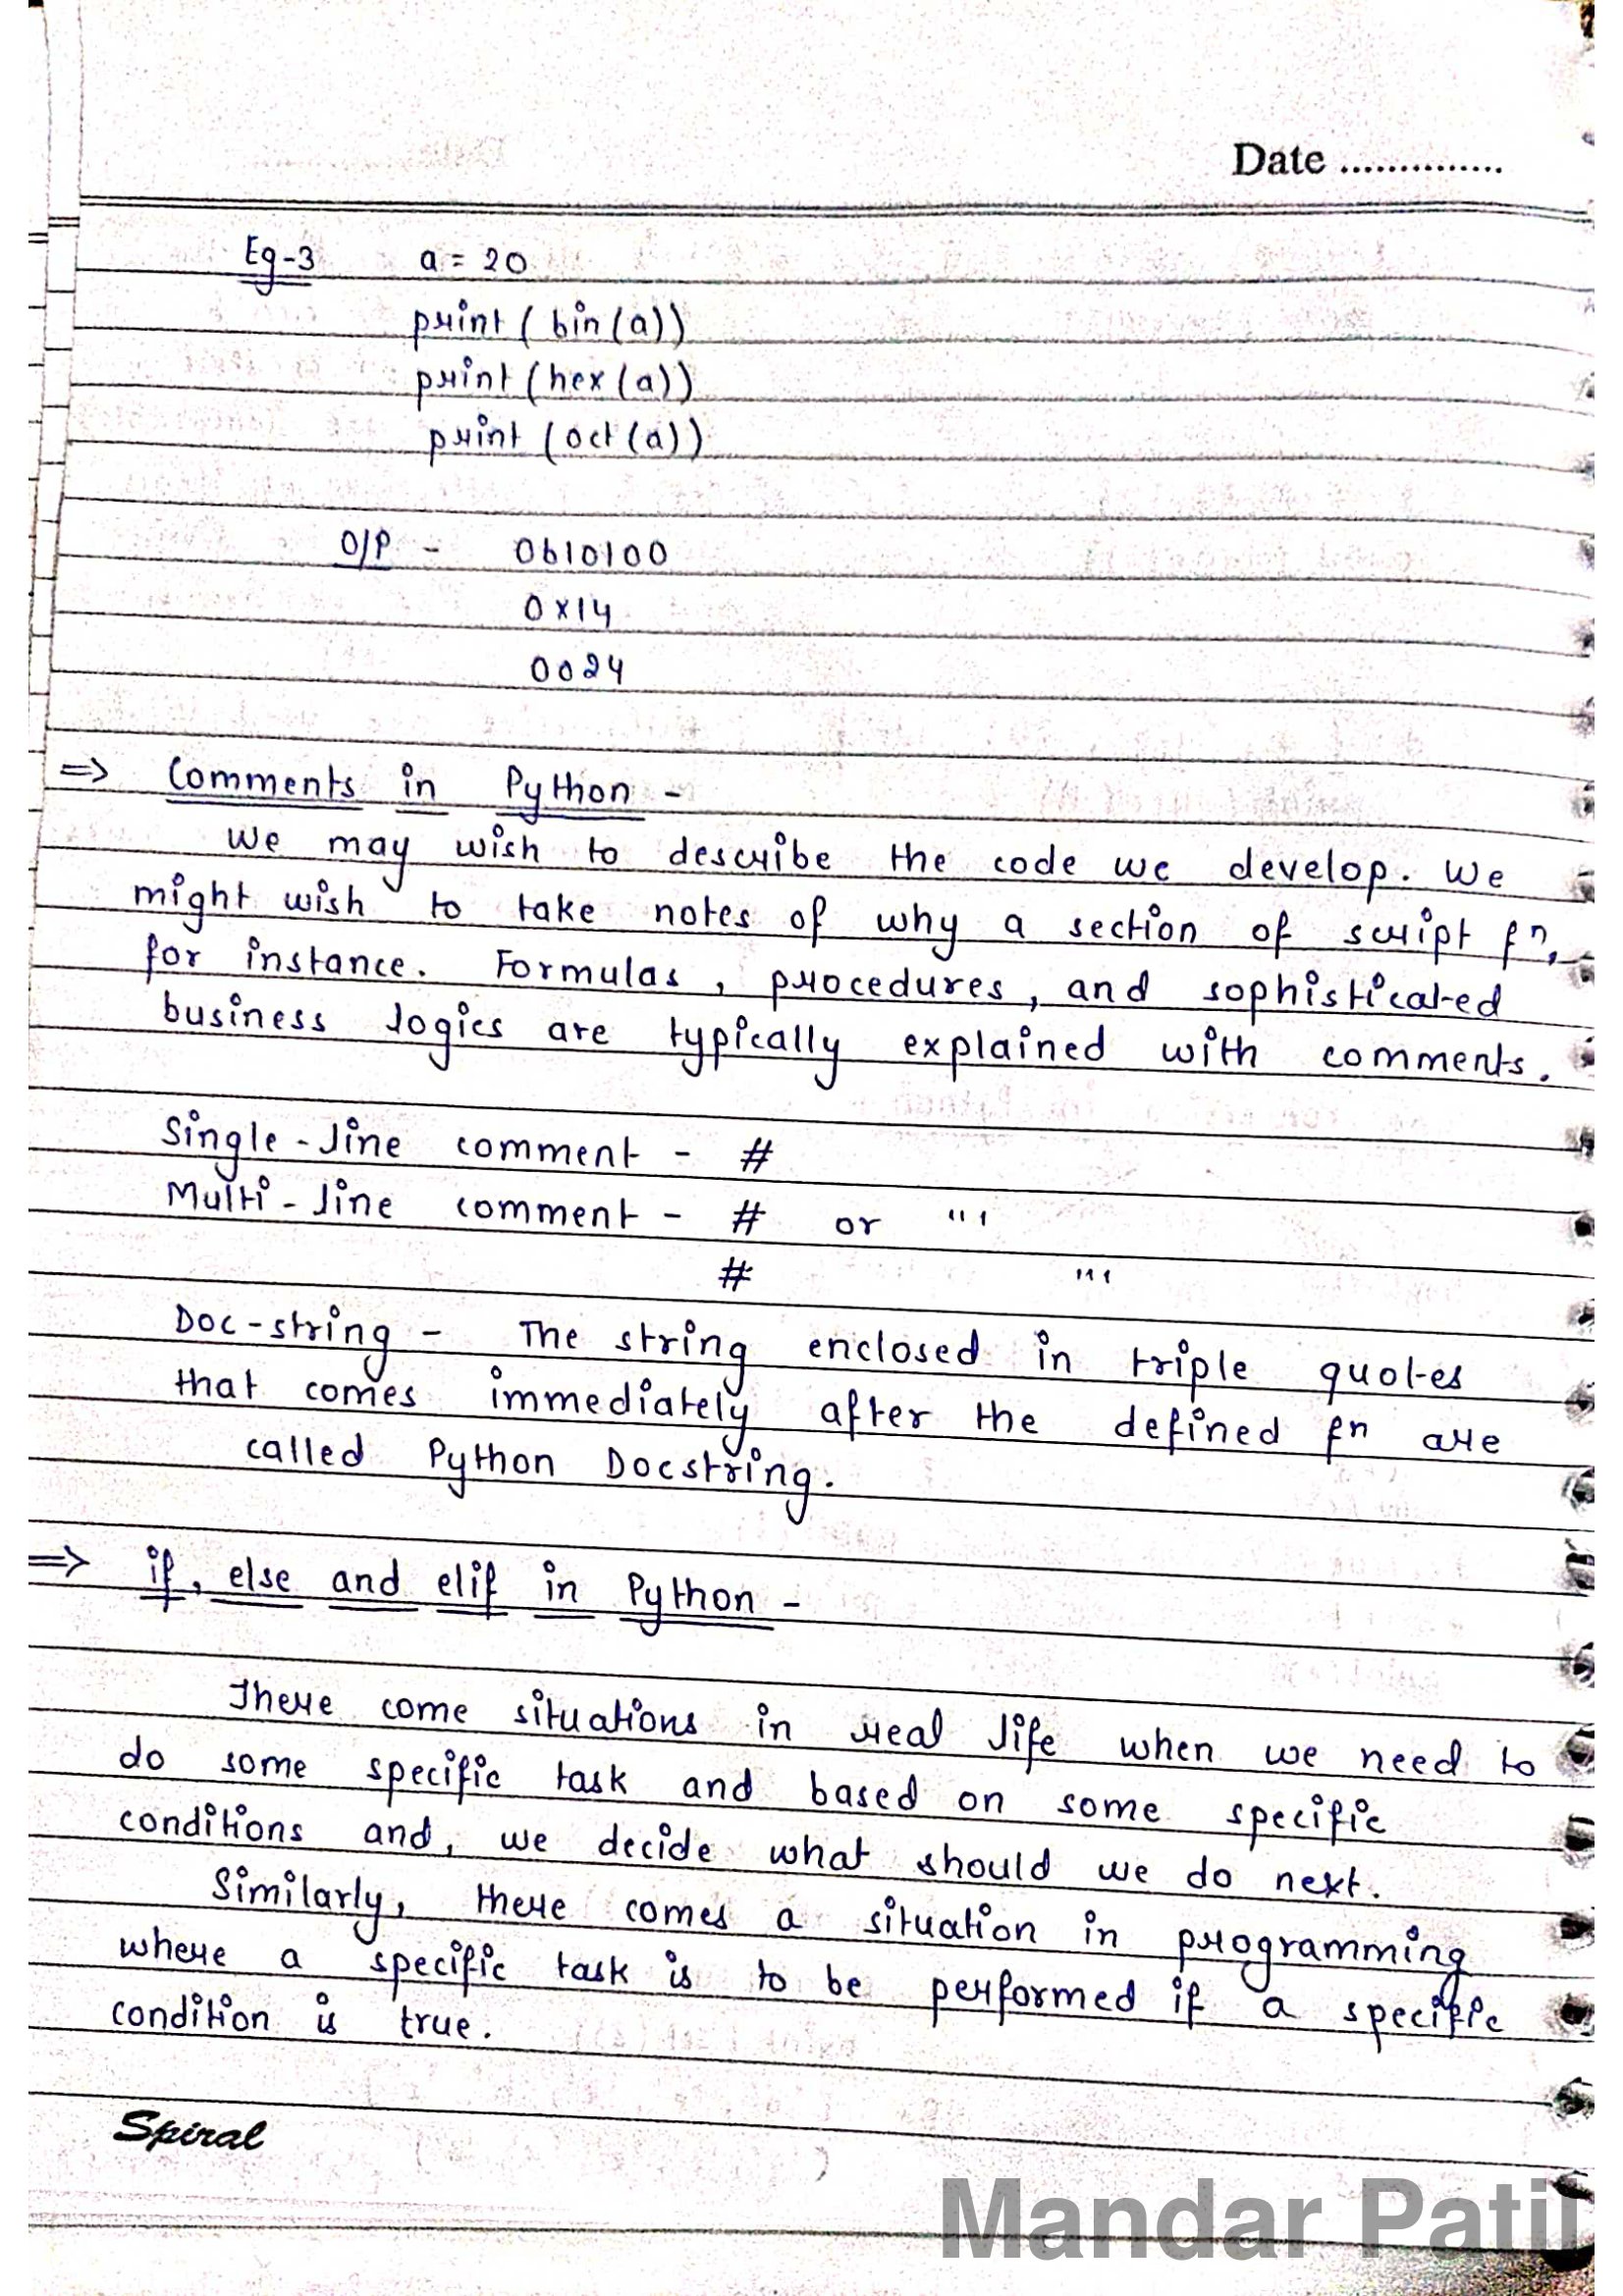 Date ..............
Eg-3 a = 20
print ( bin (a))
print (hex (a))
print (oct (a))
O/P - 0b10100
0x14
0o24
=> Comments in Python -
We may wish to describe the code we develop. We
might wish to take notes of why a section of script fn,
for instance. Formulas, procedures, and sophisticated
business logics are typically explained with comments.
Single-line comment - #
Multi-line comment - # or '''
# '''
Doc-string - The string enclosed in triple quotes
that comes immediately after the defined fn are
called Python Docstring.
=> if, else and elif in Python -
There come situations in real life when we need to
do some specific task and based on some specific
conditions and, we decide what should we do next.
Similarly, there comes a situation in programming
where a specific task is to be performed if a specific
condition is true.
Spiral
Mandar Patil